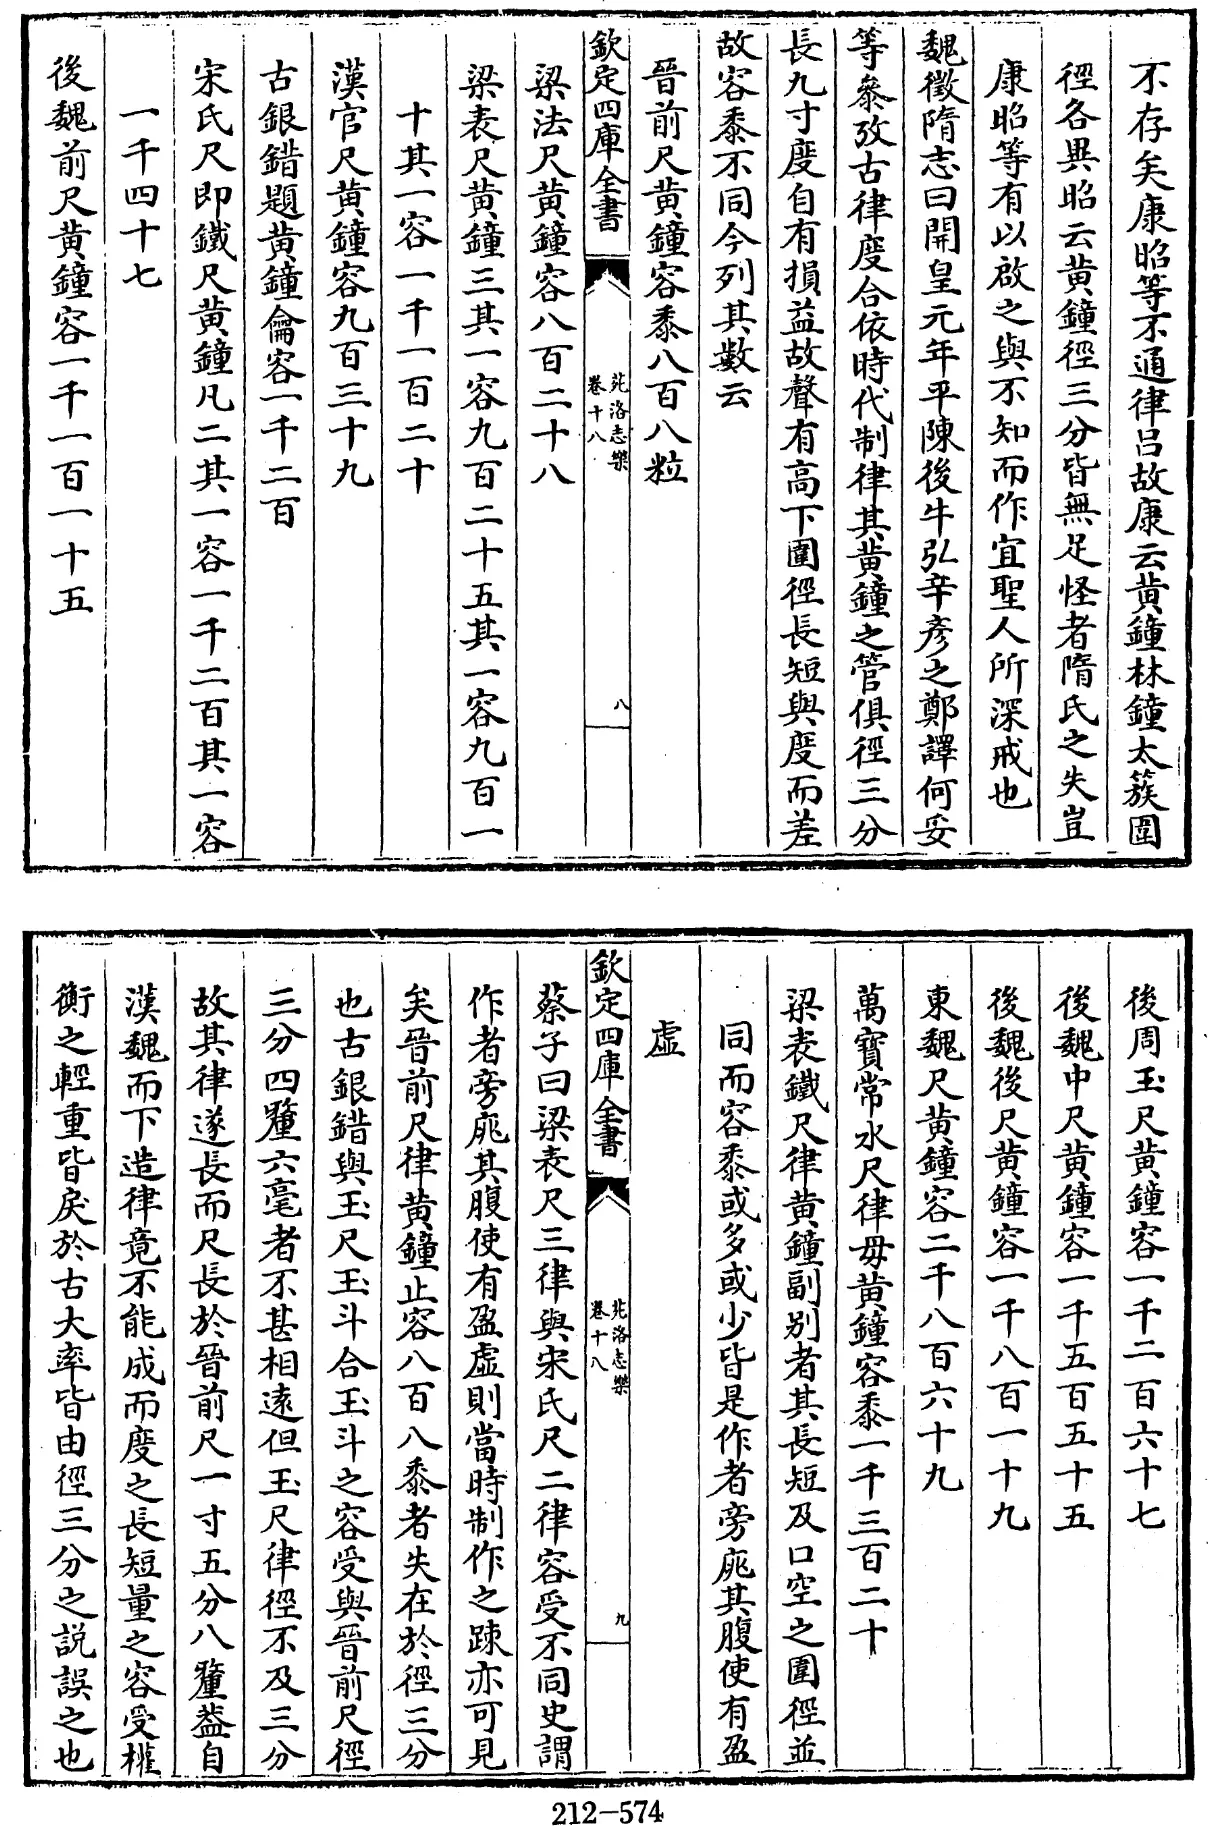 不存矣康昭等不通律呂故康云黄鐘林鐘太蔟圍
徑各異昭云黄鐘徑三分皆無足怪者隋氏之失豈
康昭等有以啟之與不知而作宜聖人所深戒也
魏徵隋志曰開皇元年平陳後牛弘辛彥之鄭譯何妥
等參攷古律度合依時代制律其黄鐘之管俱徑三分
長九寸度自有損益故聲有高下圍徑長短與度而差
故容黍不同今列其數云
晉前尺黄鐘容黍八百八粒
欽定四庫全書
苑洛志樂
卷十八
八
梁法尺黄鐘容八百二十八
梁表尺黄鐘三其一容九百二十五其一容九百一
十其一容一千一百二十
漢官尺黄鐘容九百三十九
古銀錯題黄鐘龠容一千二百
宋氏尺即鐵尺黄鐘凡二其一容一千二百其一容
一千四十七
後魏前尺黄鐘容一千一百一十五
後周玉尺黄鐘容一千二百六十七
後魏中尺黄鐘容一千五百五十五
後魏後尺黄鐘容一千八百一十九
東魏尺黄鐘容二千八百六十九
萬寶常水尺律母黄鐘容黍一千三百二十
梁表鐵尺律黄鐘副别者其長短及口空之圍徑並
同而容黍或多或少皆是作者旁庣其腹使有盈
虛
欽定四庫全書
苑洛志樂
卷十八
九
蔡子曰梁表尺三律與宋氏尺二律容受不同史謂
作者旁庣其腹使有盈虛則當時制作之踈亦可見
矣晉前尺律黄鐘止容八百八黍者失在於徑三分
也古銀錯與玉尺玉斗合玉斗之容受與晉前尺徑
三分四釐六毫者不甚相遠但玉尺律徑不及三分
故其律遂長而尺長於晉前尺一寸五分八釐葢自
漢魏而下造律竟不能成而度之長短量之容受權
衡之輕重皆戾於古大率皆由徑三分之説誤之也
212-574